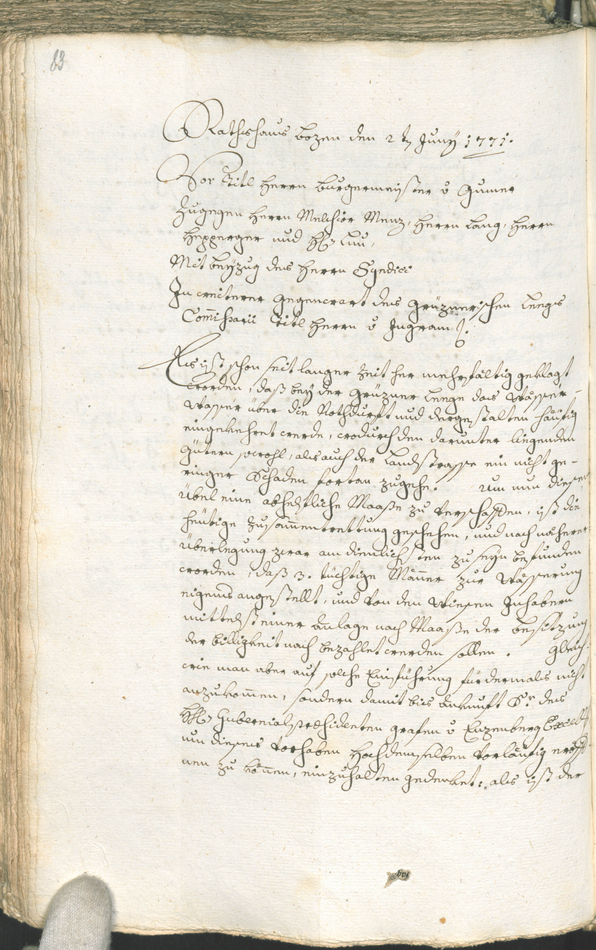 83
Rathshaus Bozen den 2 t Juny 1771.
Vor Titl Herrn Burgermeister v Gumer
Zugegen Herrn Melchior Menz, Herrn Lang, Herrn
Hepperger und
Mit beyzug des Herrn Syndici
In weiterer gegenwart des grüznerischen Leegs
Commissarii Titl Herrn v Ingram
Es ist schon seit langer Zeit her mehrfältig geklagt
worden, daß bey der grüzner Leege das Wässer-
Wasser über die Nothdurft und dergestalten häufig
eingekehret werde, wodurch den darunter liegenden
gütern sowohl, als auch der Landstrasse ein nicht ge-
ringer Schaden fortan zugehe. Um nun diesem
übel eine abhelfliche Maaße zu verschaffen, ist die
heutige Zusammentrettung geschehen, und nach näherer
überlegung zwar am dienlichsten zu seyn befunden
worden, daß 3. tüchtige Männer zur Wässerung
eigens angestellt, und von den Wiesen Inhabern
mittelst einer Anlage nach Maaße der besitzung
der billigkeit nach bezahlet werden sollen. Gleich
wie man aber auf solche Einführung für dermals nicht
anzukommen, sondern damit bis Ankunft Sr des
Gubernialpräsidenten grafen v Enzenberg Excell
um dieses Vorhaben Hochdemselben vorläufig eröff
nen zu können, einzuhalten gedenket: als ist der